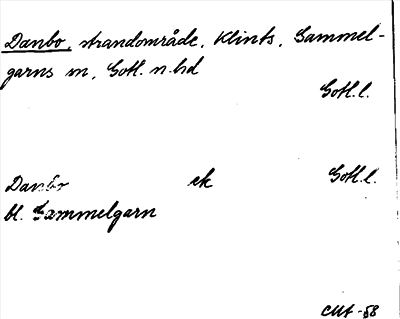 Danbo, strandområde, Klints, Gammel-
garns sn, Gotl. n. hd
Gotl. l.
Danbo ek Gotl. l.
bl. Gammelgarn
CMA -58